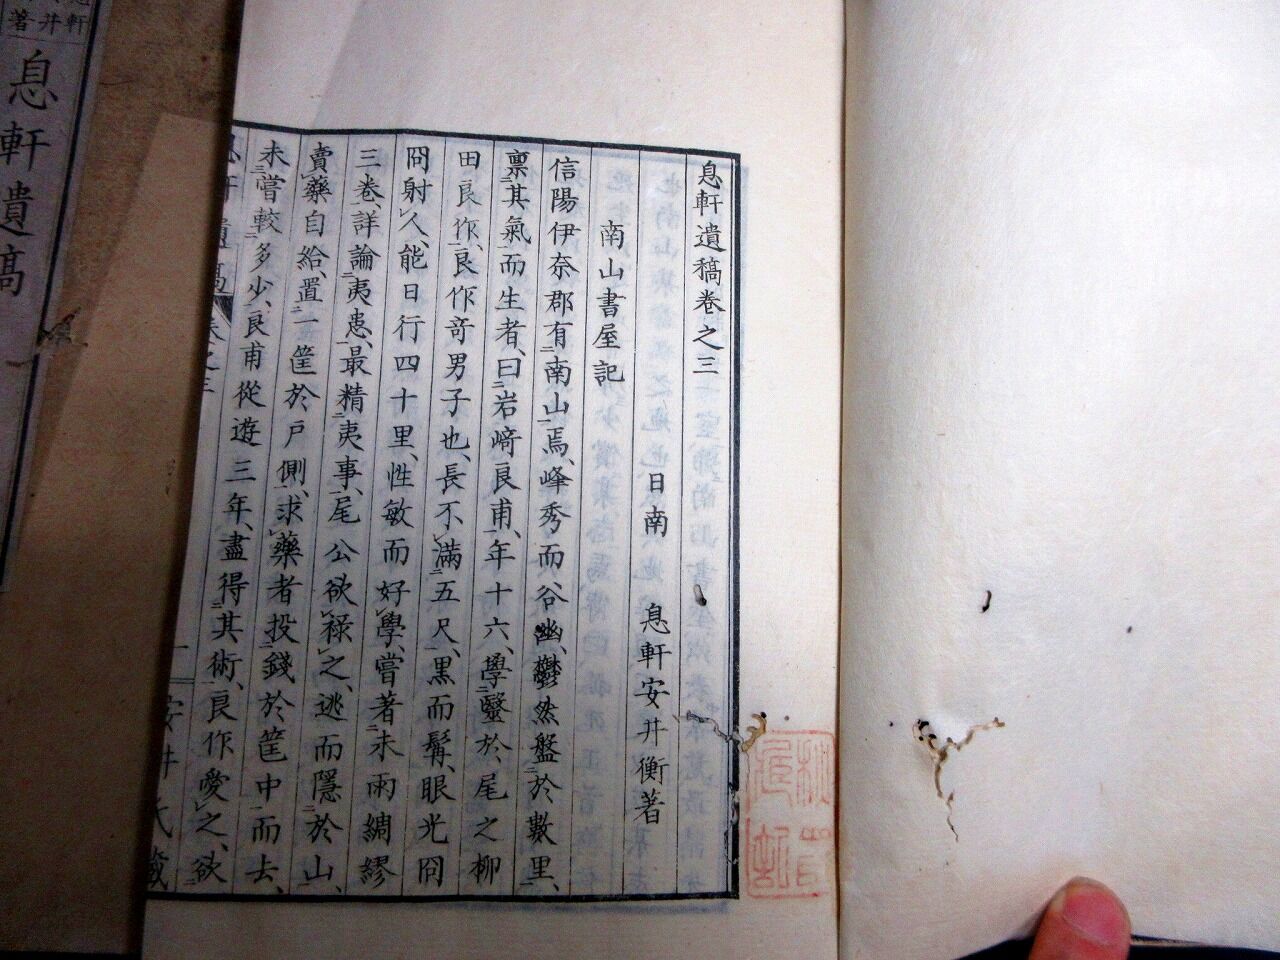 息軒遺稿卷之三
日南 息軒安井衡著
南山書屋記
信陽伊奈郡有南山焉、峰秀而谷幽、鬱然盤於數里、
禀其氣而生者、曰岩﨑良甫、年十六、學醫於尾之柳
田良作、良作奇男子也、長不滿五尺、黒而髯、眼光冏
冏射人、能日行四十里、性敏而好學、嘗著未雨綢繆
三卷、詳論夷患、最精夷事、尾公欲祿之、逃而隱於山、
賣藥自給、置一筐於戶側、求藥者投錢於筐中而去、
未嘗較多少、良甫從遊三年、盡得其術、良作愛之、欲
息軒遺稿 卷之三 一 安井氏藏
息軒遺稿